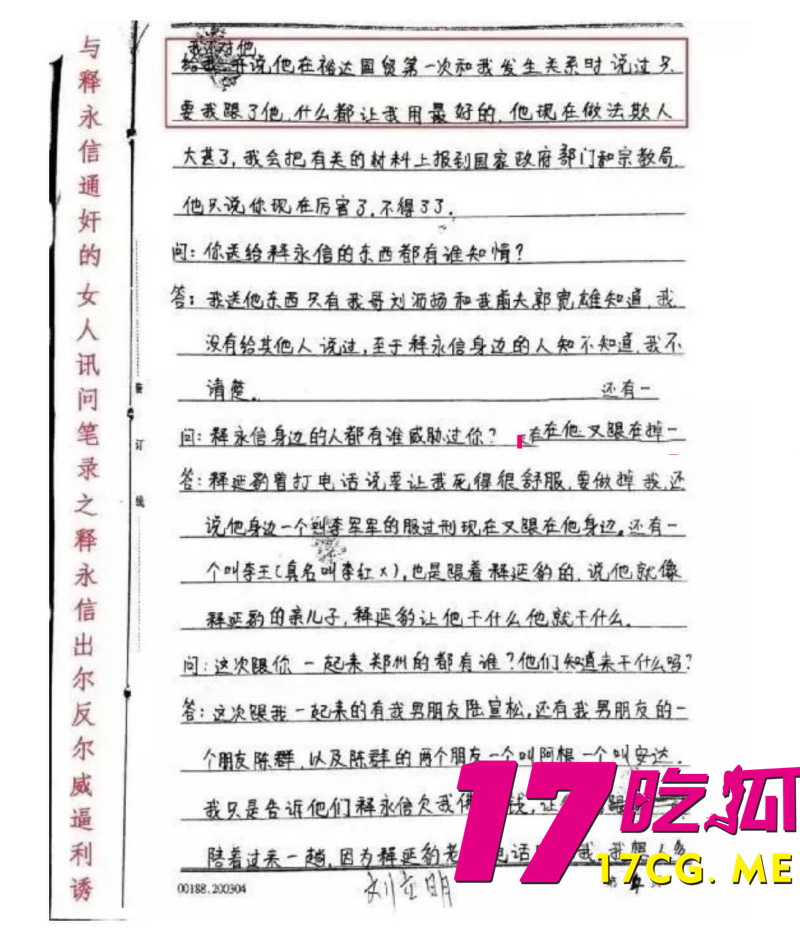 与释永信通奸的女人讯问笔录之释永信出尔反尔威逼利诱
装
订
线
我不对他
给我 开说,他在裕达国贸第一次和我发生关系时说过只
要我跟了他,什么都让我用最好的,他现在做法欺人
大甚了,我会把有关的材料上报到国家政府部门和宗教局.
他只说你现在厉害了,不得了了.
问:你送给释永信的东西都有谁知情?
答:我送他东西只有我哥刘 扬和我前夫郭宽雄知道,我
没有给其他人说过,至于释永信身边的人知不知道,我不
清楚. 还有一
问:释永信身边的人都有谁威胁过你?
在他又跟在掉一
答:释延豹曾打电话说要让我死得很舒服,要做掉我,还
说他身边一个 李军军的服过刑现在又跟在他身边,还有一
个叫李王(真名叫李红x),也是跟着释延豹的,说他就像
释延豹的亲儿子,释延豹让他干什么他就干什么.
问:这次跟你一起来郑州的都有谁?他们知道来干什么吗?
答:这次跟我一起来的有我男朋友陆宣松,还有我男朋友的一
个朋友陈群,以及陈群的两个朋友一个叫阿根一个叫安达.
我只是告诉他们释永信欠我 钱,让 跟
陪着过来一趟,因为释延豹老 电话 我,我
00188.200304
刘立明
第 4 页
17吃狐
17CG.ME